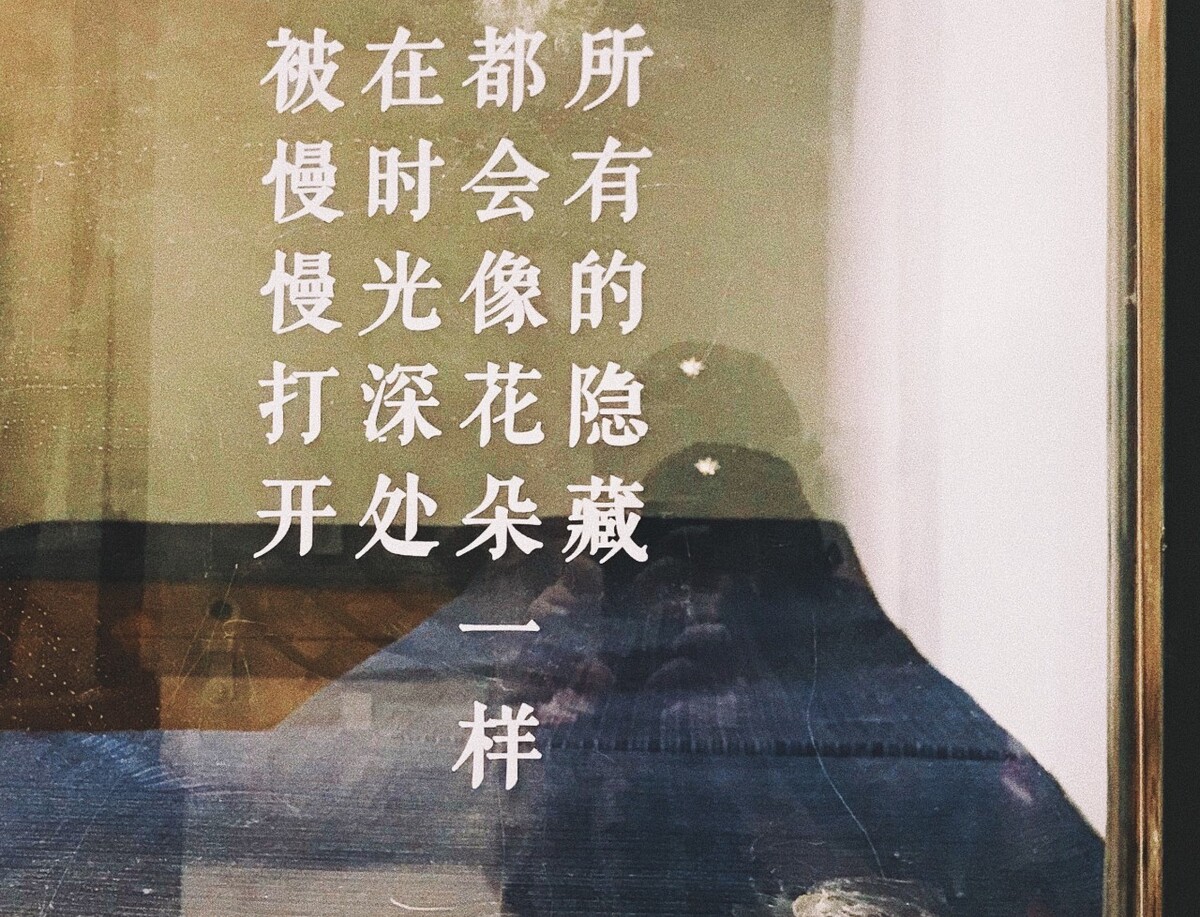 所有的隐藏
都会像花朵一样
在时光深处
被慢慢打开